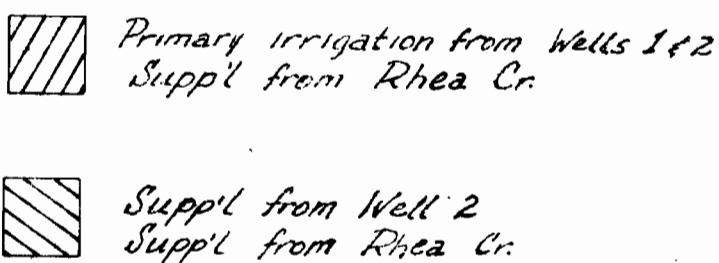 Primary irrigation from Wells 1 & 2
Supp'l from Rhea Cr.
Supp'l from Well 2
Supp'l from Rhea Cr.